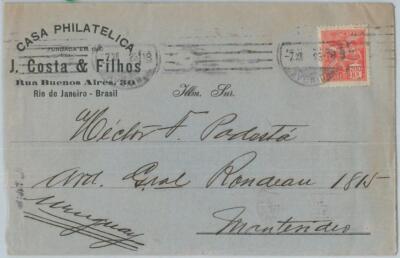 CASA PHILATELICA
FUNDADA EM
J. Costa & Filhos
Rua Buenos Aires, 30
Rio de Janeiro - Brasil
Illm. Snr.
Héctor F. Podestá
Avd. Gral Rondeau 1815
Uruguay
Montevideo